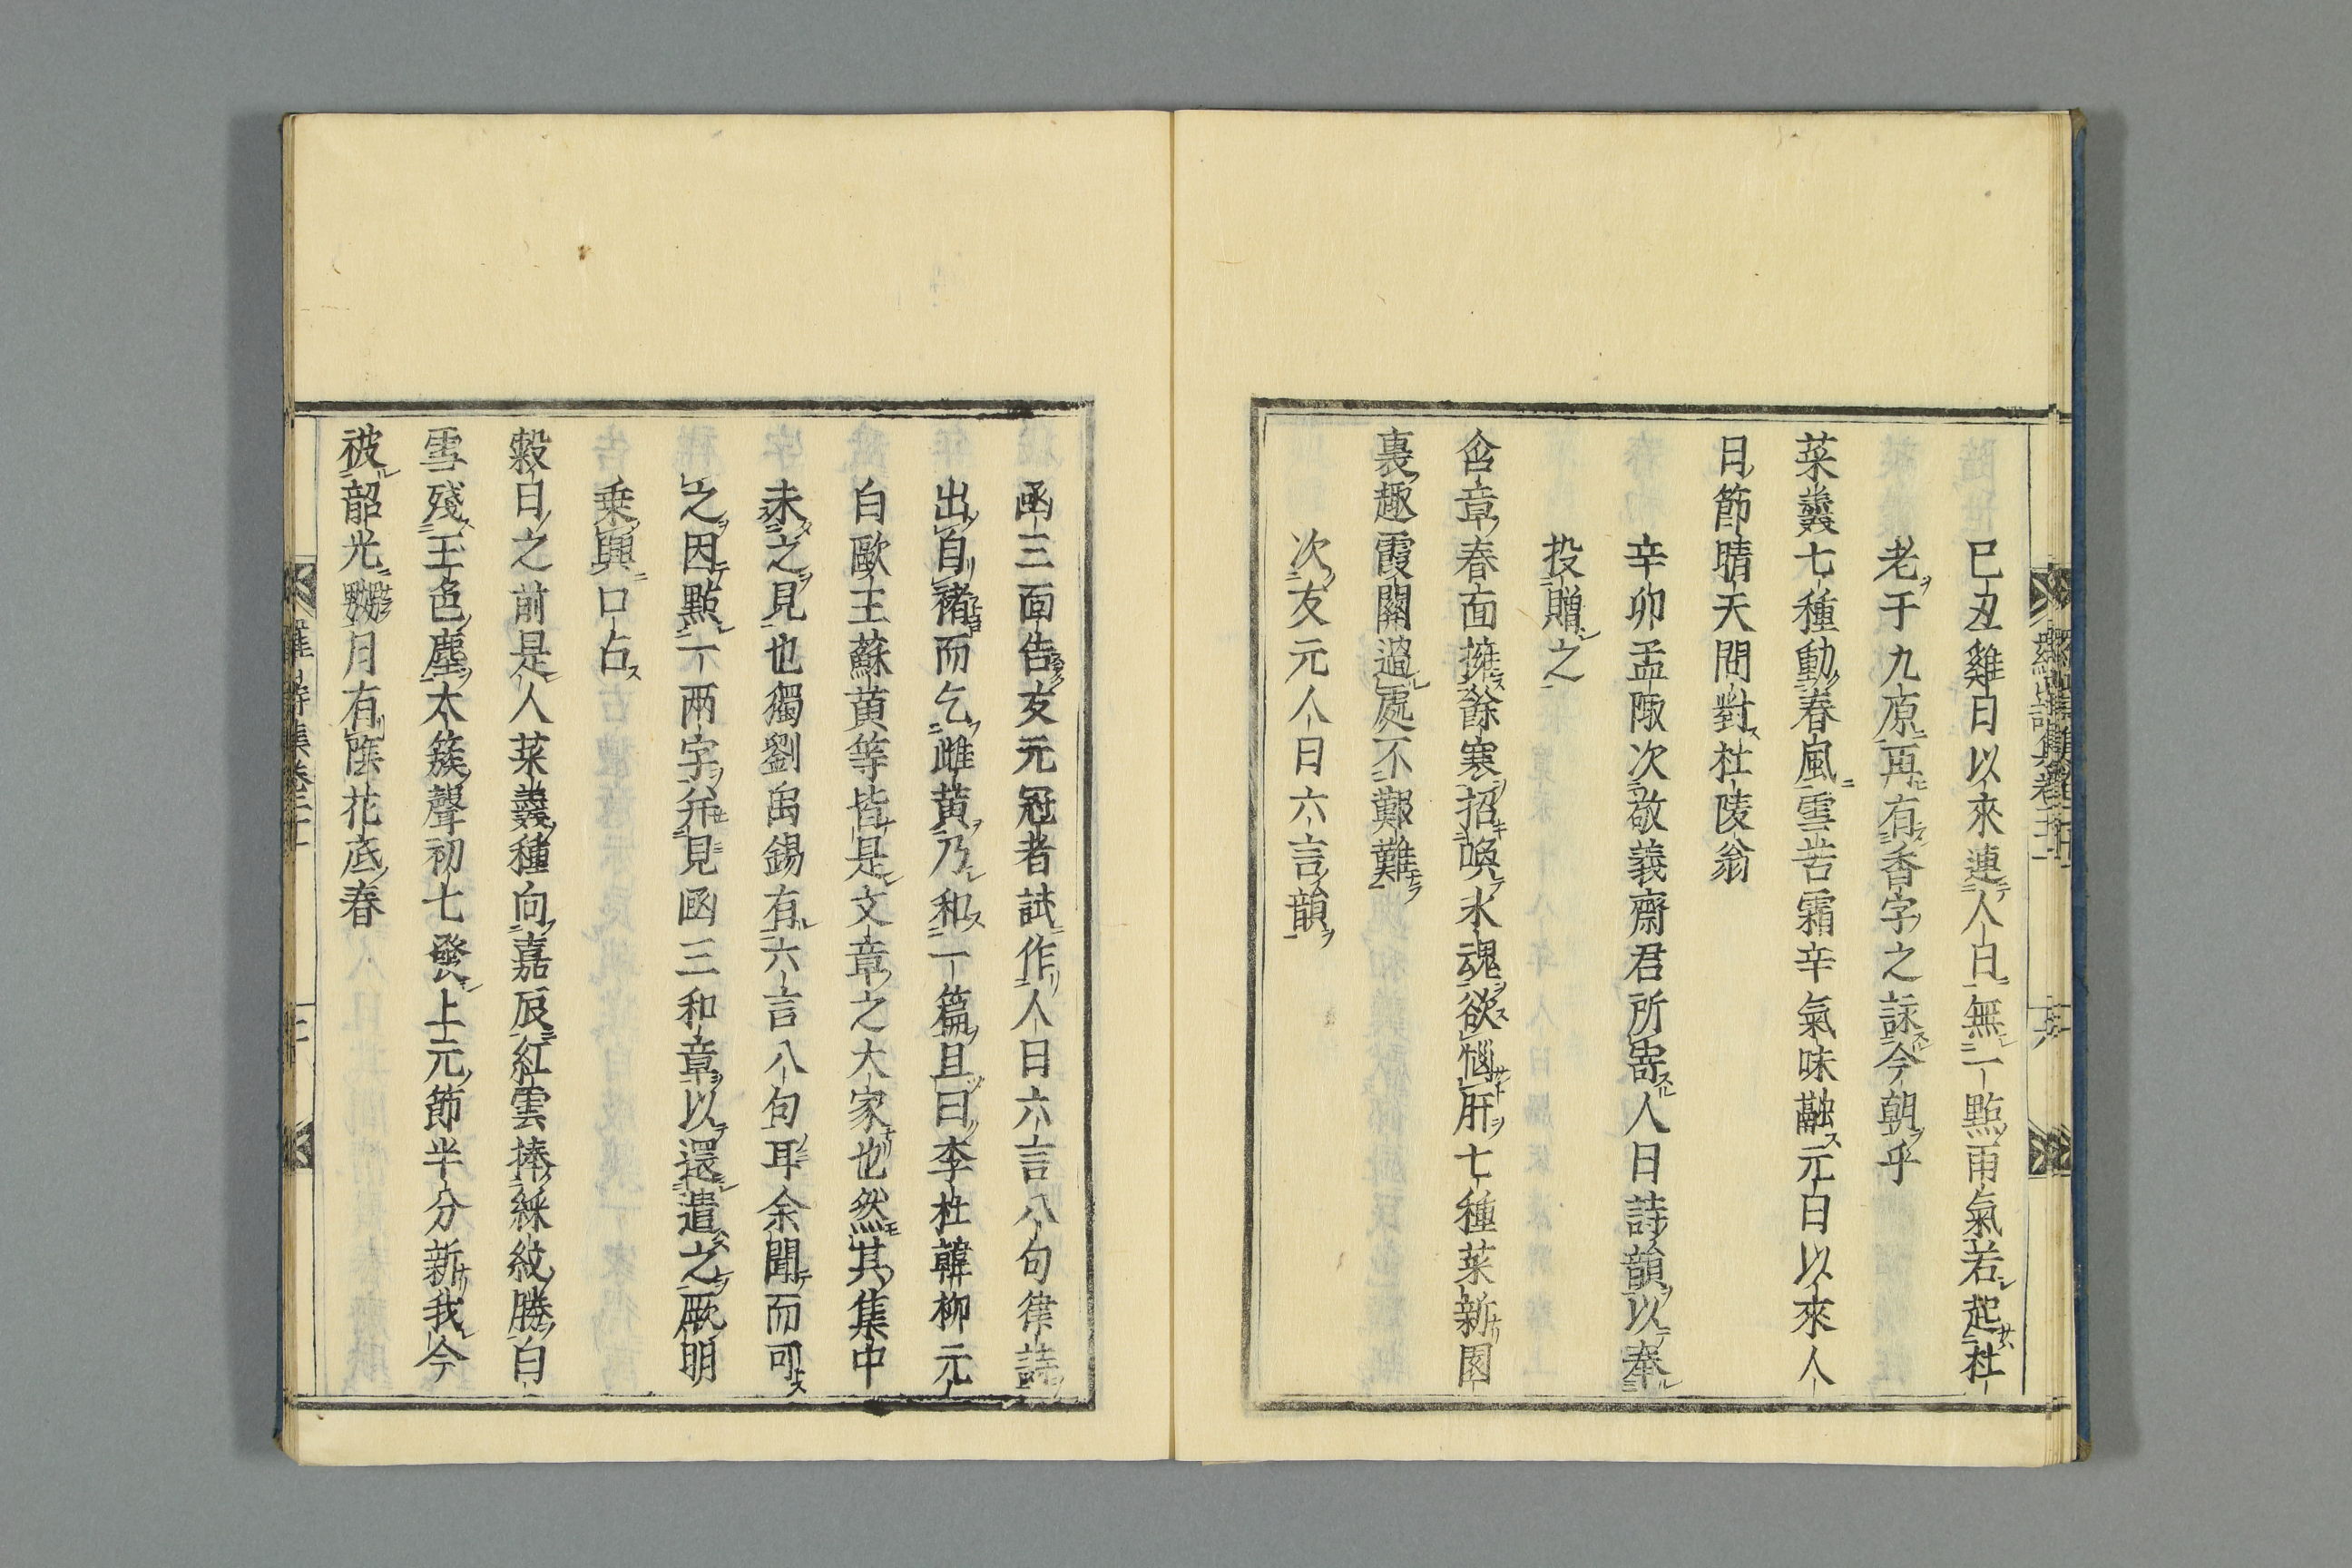 巳丑雞日以來連人日無一點雨氣若起杜
老于九原再有香字之詠今朝乎
菜羹七種動春風雪苦霜辛氣味融元日以來人
日節晴天間對杜陵翁
辛卯孟陬次敬義齋君所寄人日詩韻以奉
投贈之
含章春面擁餘寒招喚氷魂欲惱肝七種菜新園
裏趣霞關過處不艱難
次友元人日六言韻
函三面告友元冠者試作人日六言八句律詩
出自褚而乞雌黄乃和一篇且曰李杜韓柳元
白歐王蘇黄等皆是文章之大家也然其集中
未之見也獨劉禹錫有六言八句耳余聞而可
之因點一兩字并見函三和章以還遣之厥明
乗興口占
穀日之前是人菜羹種向嘉辰紅雲捧綵紋勝白
雪殘王色塵太簇聲初七發上元節半分新我今
被韶光嬲月有陰花底春